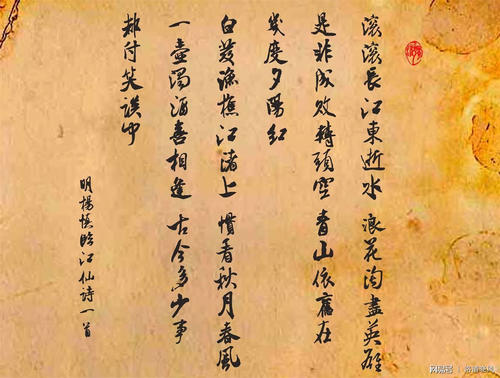 滚滚長江東逝水 浪花淘盡英雄
是非成敗轉頭空 青山依舊在
幾度夕陽紅
白發漁樵江渚上 慣看秋月春風
一壺濁酒喜相逢 古今多少事
都付笑談中
明楊慎臨江仙詩一首
网易号